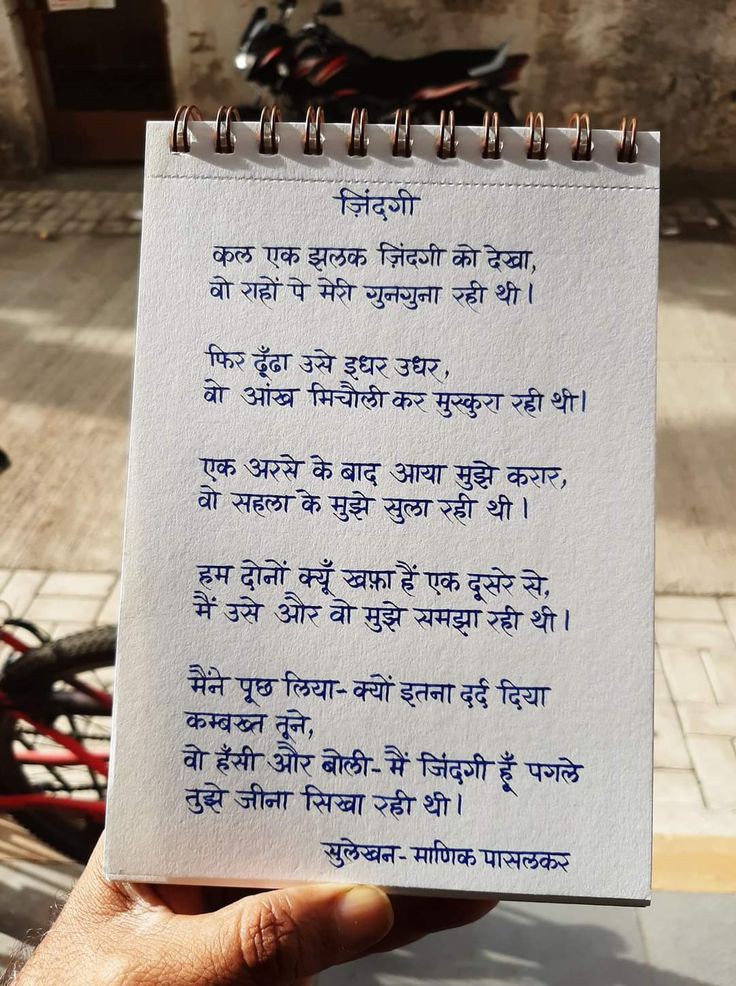 ज़िंदगी
कल एक झलक ज़िंदगी को देखा,
वो राहों पे मेरी गुनगुना रही थी।
फिर ढूँढा उसे इधर उधर,
वो आंख मिचौली कर मुस्कुरा रही थी।
एक अरसे के बाद आया मुझे करार,
वो सहला के मुझे सुला रही थी।
हम दोनों क्यूँ खफ़ा हैं एक दूसरे से,
मैं उसे और वो मुझे समझा रही थी।
मैंने पूछ लिया- क्यों इतना दर्द दिया
कम्बख्त तूने,
वो हँसी और बोली- मैं जिंदगी हूँ पगले
तुझे जीना सिखा रही थी।
सुलेखन- माणिक पासलकर